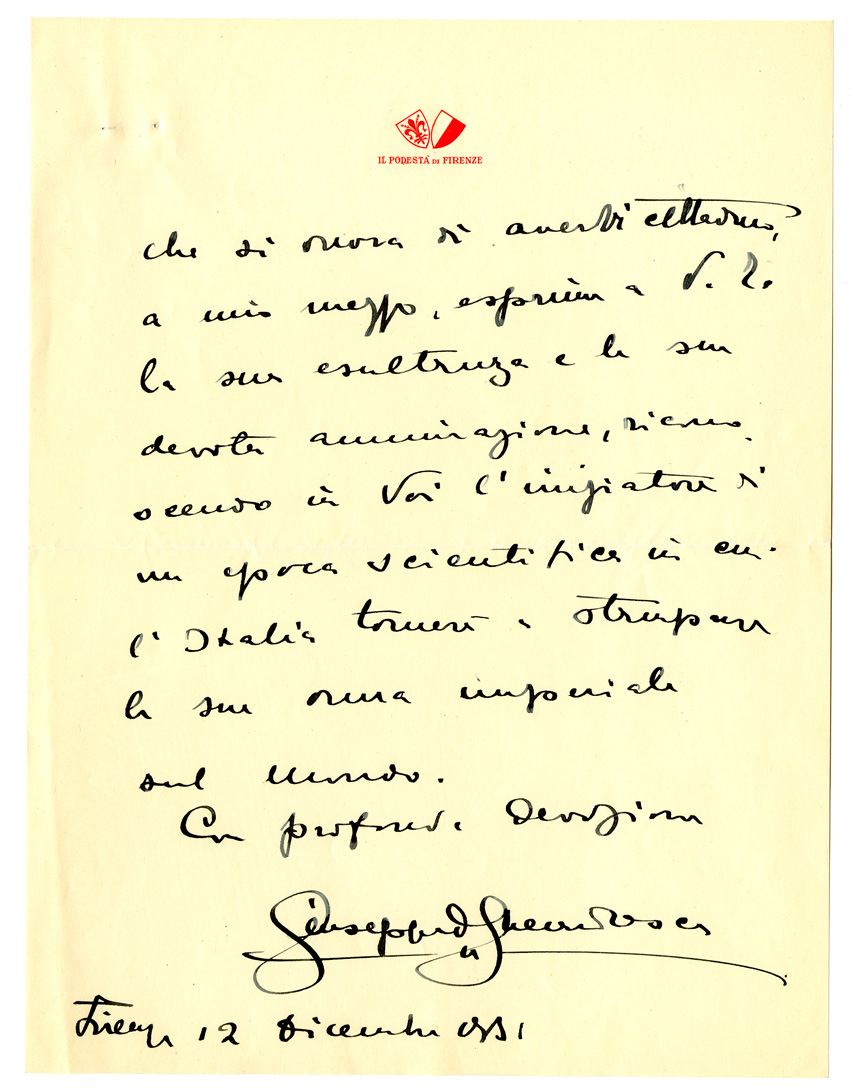 IL PODESTÀ DI FIRENZE
che si onora di avervi cittadino,
a mio mezzo, esprime a V. E.
la sua esultanza e la sua
devota ammirazione, ricono
scendo in Voi l'iniziatore di
un epoca scientifica in cui
l'Italia tornerà a stampare
la sua orma imperiale
sul mondo.
Con profonda devozione
Giuseppe della Gherardesca
Firenze 12 Dicembre 1931